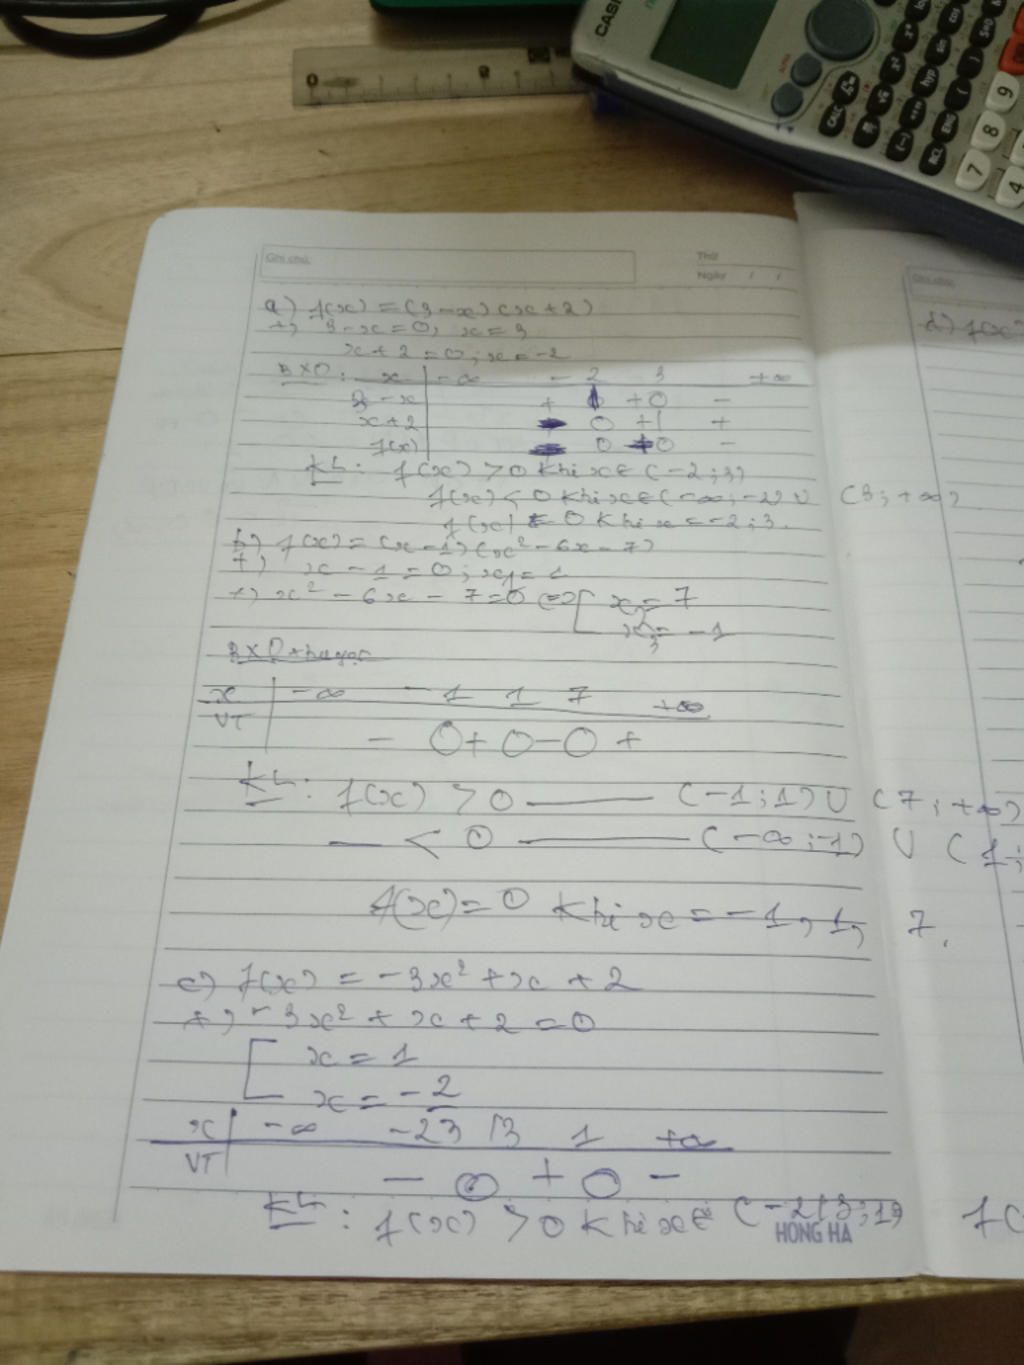 CASIO
0
CALC
hyp
sin
cos
(-)
RCL
ENG
(
)
7
8
9
4
Ghi chú:
Thứ
Ngày / /
a) f(x) = (3-x)(x+2)
+) 3-x=0; x=3
x+2=0; x=-2
BXD: x -∞ -2 3 +∞
3-x + | +0 -
x+2 - 0 +| +
f(x) - 0 +0 -
KL: f(x) >0 khi x∈ (-2;3)
f(x) < 0 khi x∈(-∞;-2) ∪ (3;+∞)
f(x) = 0 khi x=-2;3.
b) f(x) = (x-1)(x²-6x-7)
+) x-1=0; x₁=1
+) x²-6x-7=0 <=> [ x₂=7
x₃=-1
BXD
x -∞ -1 1 7 +∞
VT - 0+0-0 +
KL: f(x) >0 —— (-1;1)∪ (7;+∞)
— < 0 —— (-∞;-1) ∪ (1;
f(x)=0 khi x=-1, 1, 7.
c) f(x) = -3x²+x+2
+) -3x²+x+2=0
[ x=1
x=-2
x -∞ -23 /3 1 +∞
VT - 0 + 0 -
KL: f(x) >0 khi x∈ (-2/3;1) f(
HONG HA
Ghi chú:
d) f(x)